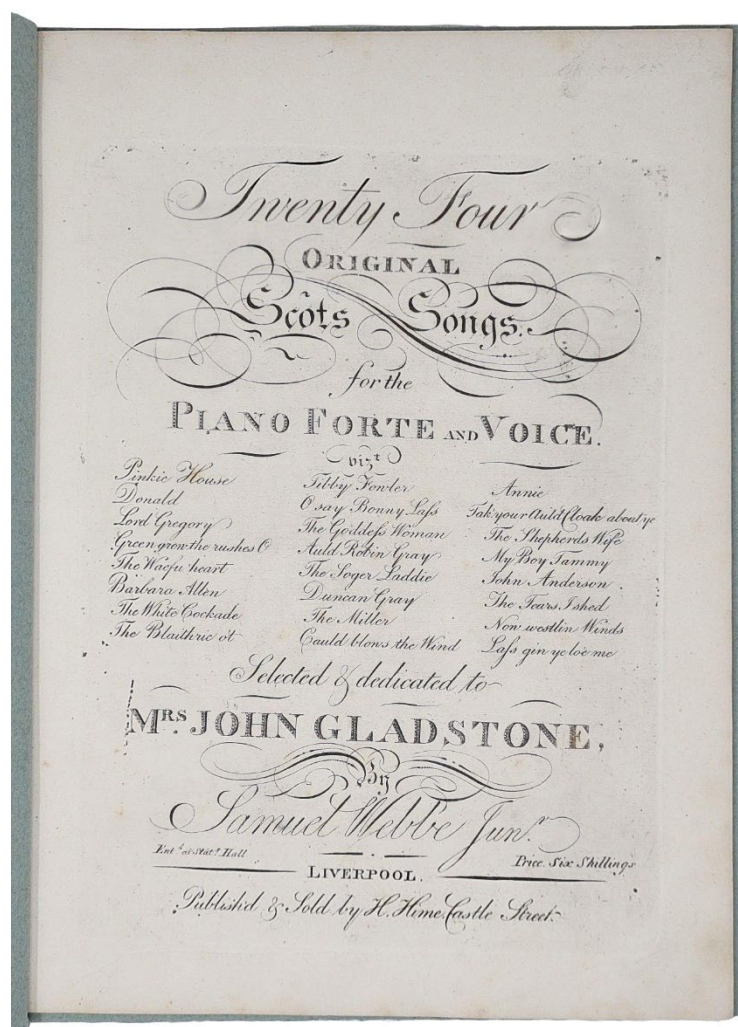 Twenty Four
ORIGINAL
Scôts Songs.
for the
PIANO FORTE AND VOICE.
vizt
Pinkie House
Donald
Lord Gregory
Green grow the rushes O
The Waefu heart
Barbara Allen
The White Cockade
The Blaithrie o't
Tibby Fowler
O say Bonny Lass
The Goddess Woman
Auld Robin Gray
The Soger Laddie
Duncan Gray
The Miller
Cauld blows the Wind
Annie
Tak your Auld Cloak about ye
The Shepherds Wife
My Boy Tammy
John Anderson
The Tears I shed
Now westlin Winds
Lass gin ye lo'e me
Selected & dedicated to
MRS. JOHN GLADSTONE,
By
Samuel Webbe Junr.
Entd. at Statrs. Hall
Price Six Shillings
LIVERPOOL.
Publish'd & Sold by H. Hime Castle Street.